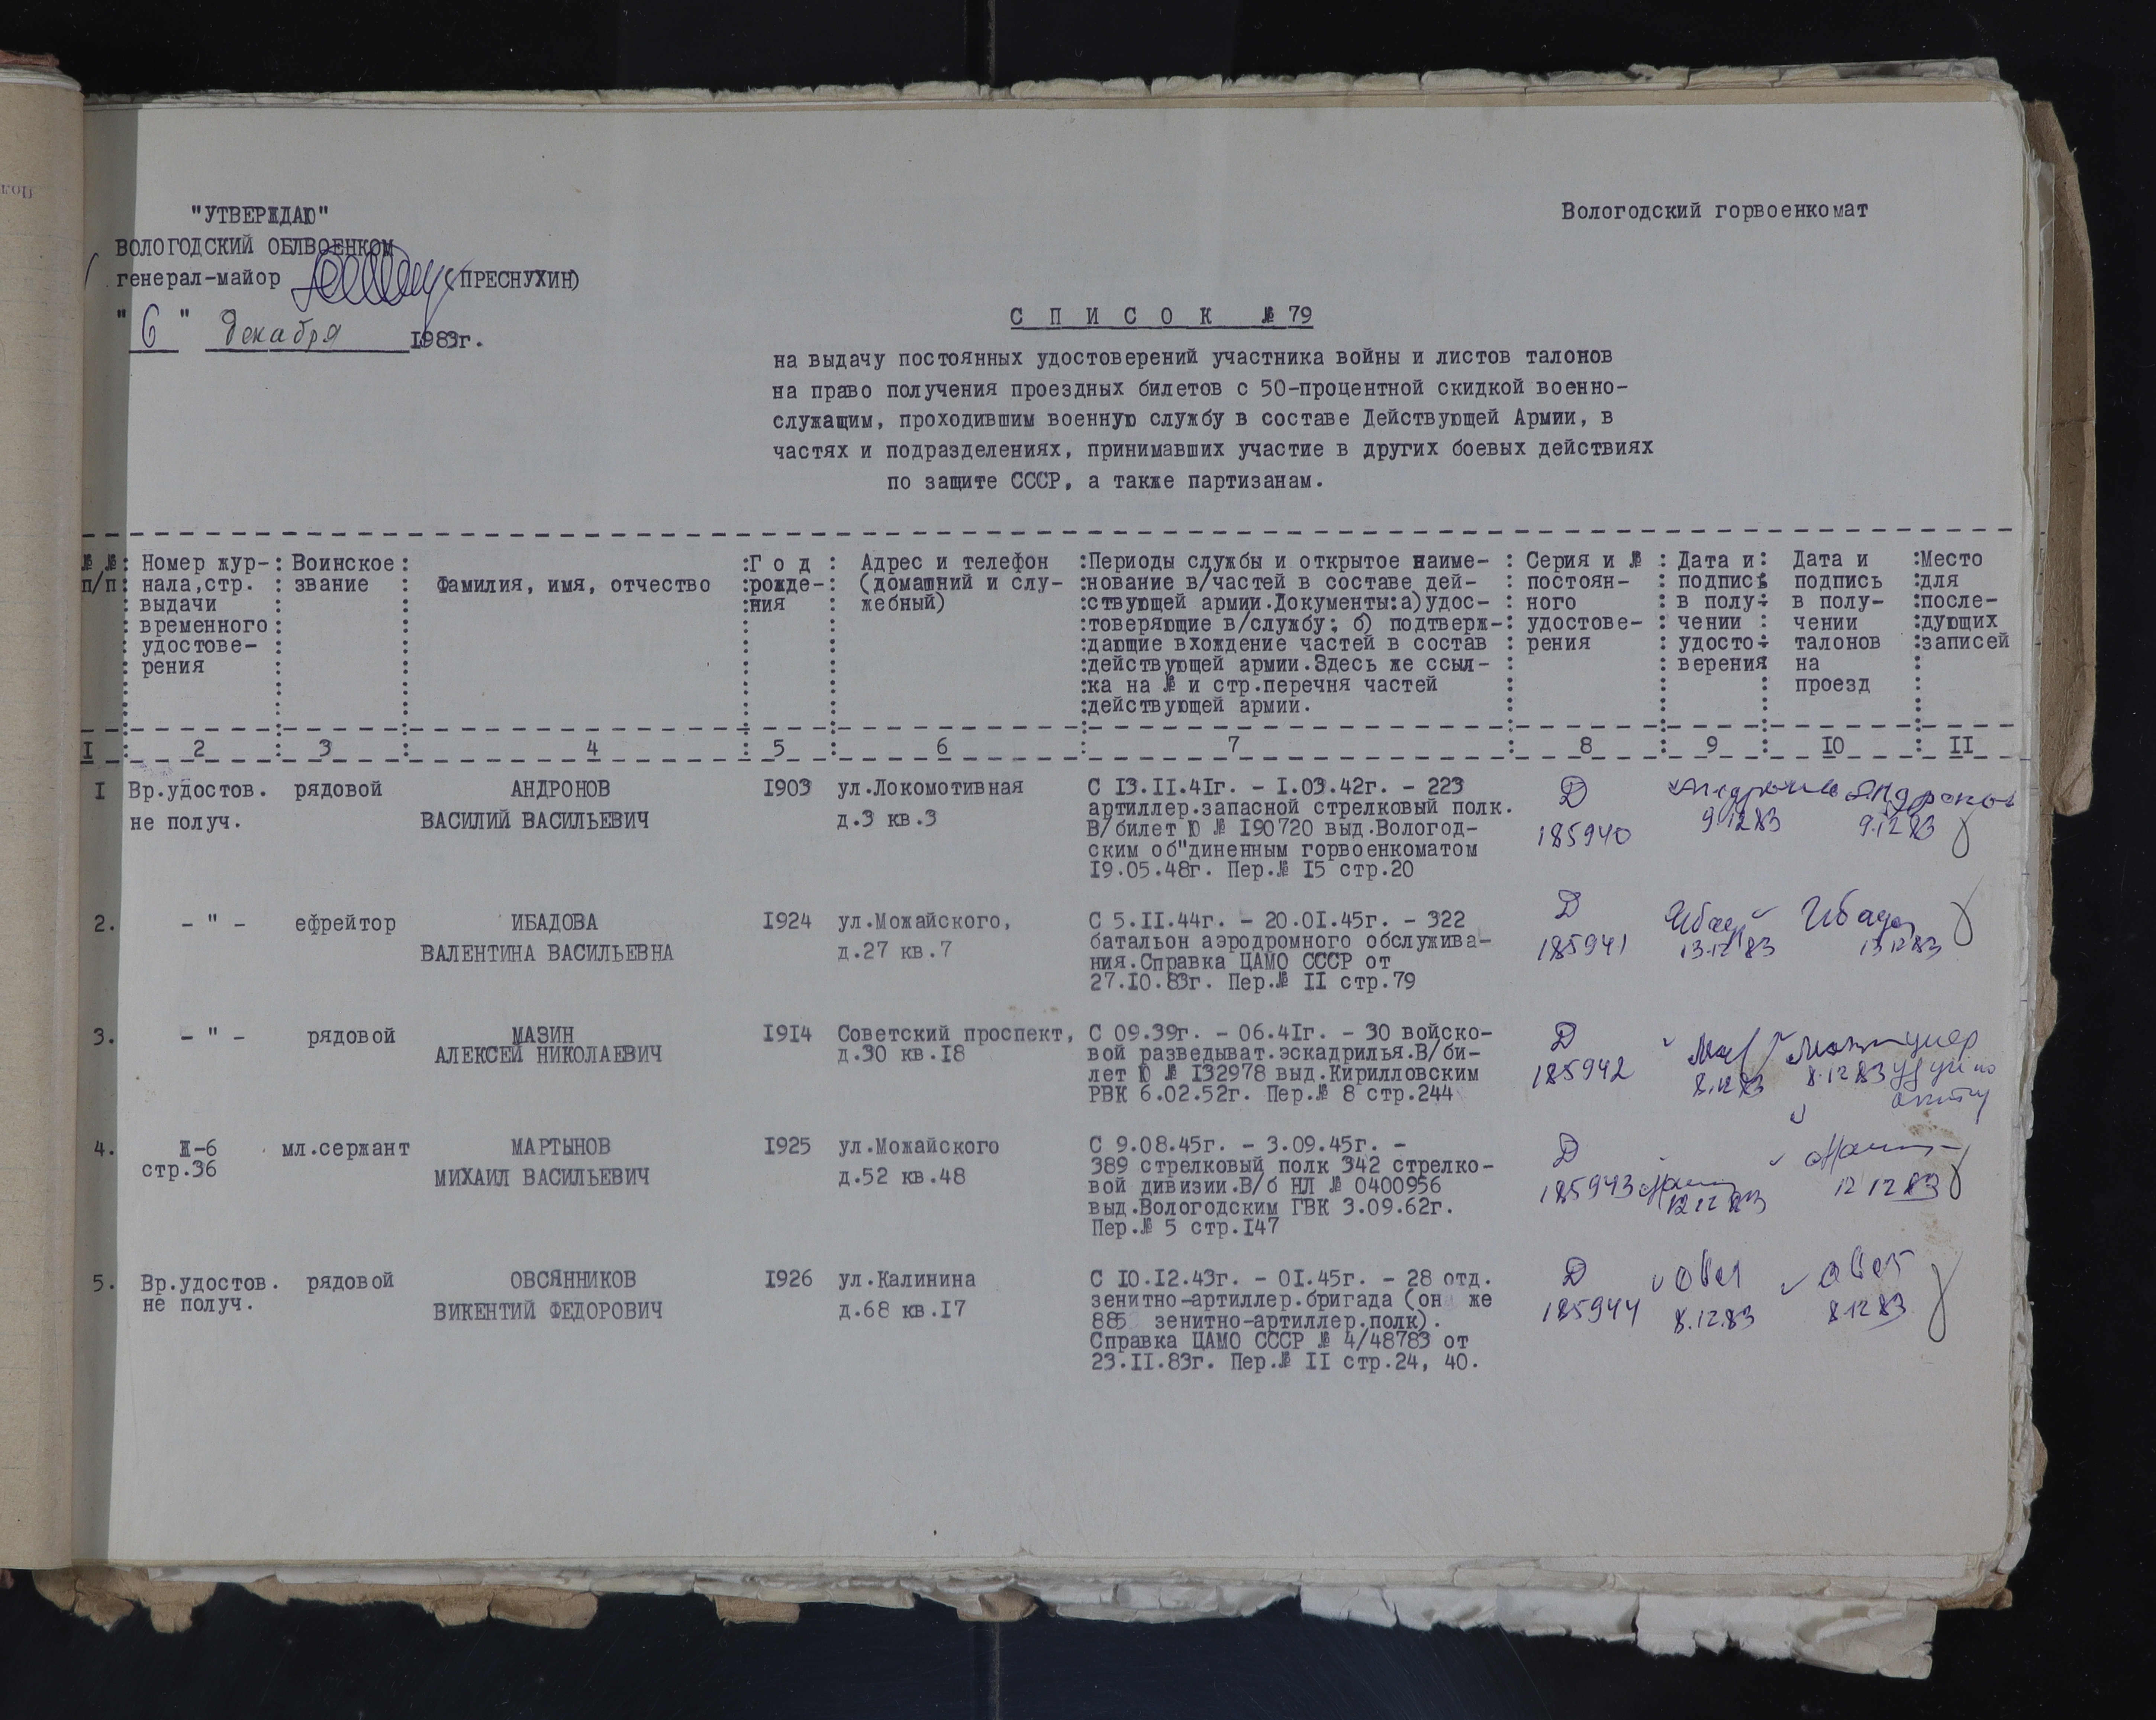 "УТВЕРЖДАЮ"
ВОЛОГОДСКИЙ ОБЛВОЕНКОМ
генерал-майор (ПРЕСНУХИН)
"6" декабря 1983г.
Вологодский горвоенкомат
С П И С О К № 79
на выдачу постоянных удостоверений участника войны и листов талонов
на право получения проездных билетов с 50-процентной скидкой военно-
служащим, проходившим военную службу в составе Действующей Армии, в
частях и подразделениях, принимавших участие в других боевых действиях
по защите СССР, а также партизанам.
№ №
п/п
Номер жур-
нала,стр.
выдачи
временного
удостове-
рения
Воинское
звание
Фамилия, имя, отчество
Г о д
рожде-
ния
Адрес и телефон
(домашний и слу-
жебный)
Периоды службы и открытое наиме-
нование в/частей в составе дей-
ствующей армии.Документы:а)удос-
товеряющие в/службу; б) подтверж-
дающие вхождение частей в состав
действующей армии.Здесь же ссыл-
ка на № и стр.перечня частей
действующей армии.
Серия и №
постоян-
ного
удостове-
рения
Дата и
подпись
в полу-
чении
удосто-
верения
Дата и
подпись
в полу-
чении
талонов
на
проезд
Место
для
после-
дующих
записей
I 2 3 4 5 6 7 8 9 IO II
I
Вр.удостов.
не получ.
рядовой
АНДРОНОВ
ВАСИЛИЙ ВАСИЛЬЕВИЧ
I903
ул.Локомотивная
д.3 кв.3
С I3.II.4Iг. - I.03.42г. - 223
артиллер.запасной стрелковый полк.
В/билет Ю № I90720 выд.Вологод-
ским об"диненным горвоенкоматом
I9.05.48г. Пер.№ I5 стр.20
Д
185940
Андронов
9.12.83
Андронов
9.12.83
2.
- " -
ефрейтор
ИБАДОВА
ВАЛЕНТИНА ВАСИЛЬЕВНА
I924
ул.Можайского,
д.27 кв.7
С 5.II.44г. - 20.0I.45г. - 322
батальон аэродромного обслужива-
ния.Справка ЦАМО СССР от
27.I0.83г. Пер.№ II стр.79
Д
185941
Ибад
13.12.83
Ибадо
13.12.83
3.
- " -
рядовой
МАЗИН
АЛЕКСЕЙ НИКОЛАЕВИЧ
I9I4
Советский проспект,
д.30 кв.I8
С 09.39г. - 06.4Iг. - 30 войско-
вой разведыват.эскадрилья.В/би-
лет Ю № I32978 выд.Кирилловским
РВК 6.02.52г. Пер.№ 8 стр.244
Д
185942
8.12.83
8.12.83
умер
4.
Ж-6
стр.36
мл.сержант
МАРТЫНОВ
МИХАИЛ ВАСИЛЬЕВИЧ
I925
ул.Можайского
д.52 кв.48
С 9.08.45г. - 3.09.45г. -
389 стрелковый полк 342 стрелко-
вой дивизии.В/б НЛ № 0400956
выд.Вологодским ГВК 3.09.62г.
Пер.№ 5 стр.I47
Д
185943
12.12.83
12.12.83
5.
Вр.удостов.
не получ.
рядовой
ОВСЯННИКОВ
ВИКЕНТИЙ ФЕДОРОВИЧ
I926
ул.Калинина
д.68 кв.I7
С I0.I2.43г. - 0I.45г. - 28 отд.
зенитно-артиллер.бригада (он же
885 зенитно-артиллер.полк).
Справка ЦАМО СССР № 4/48783 от
23.II.83г. Пер.№ II стр.24, 40.
Д
185944
8.12.83
8.12.83